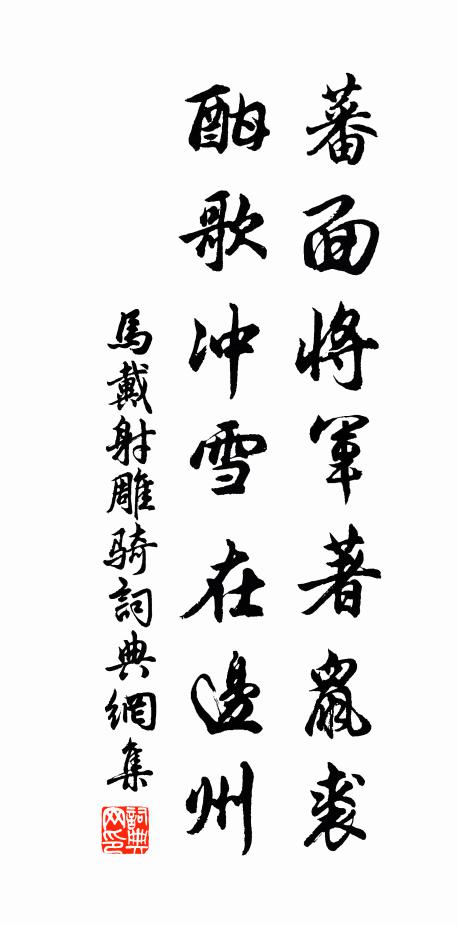 蕃面將軍著鼠裘
酣歌冲雪在邊州
馬戴射雕骑詞典網集
詞典网印